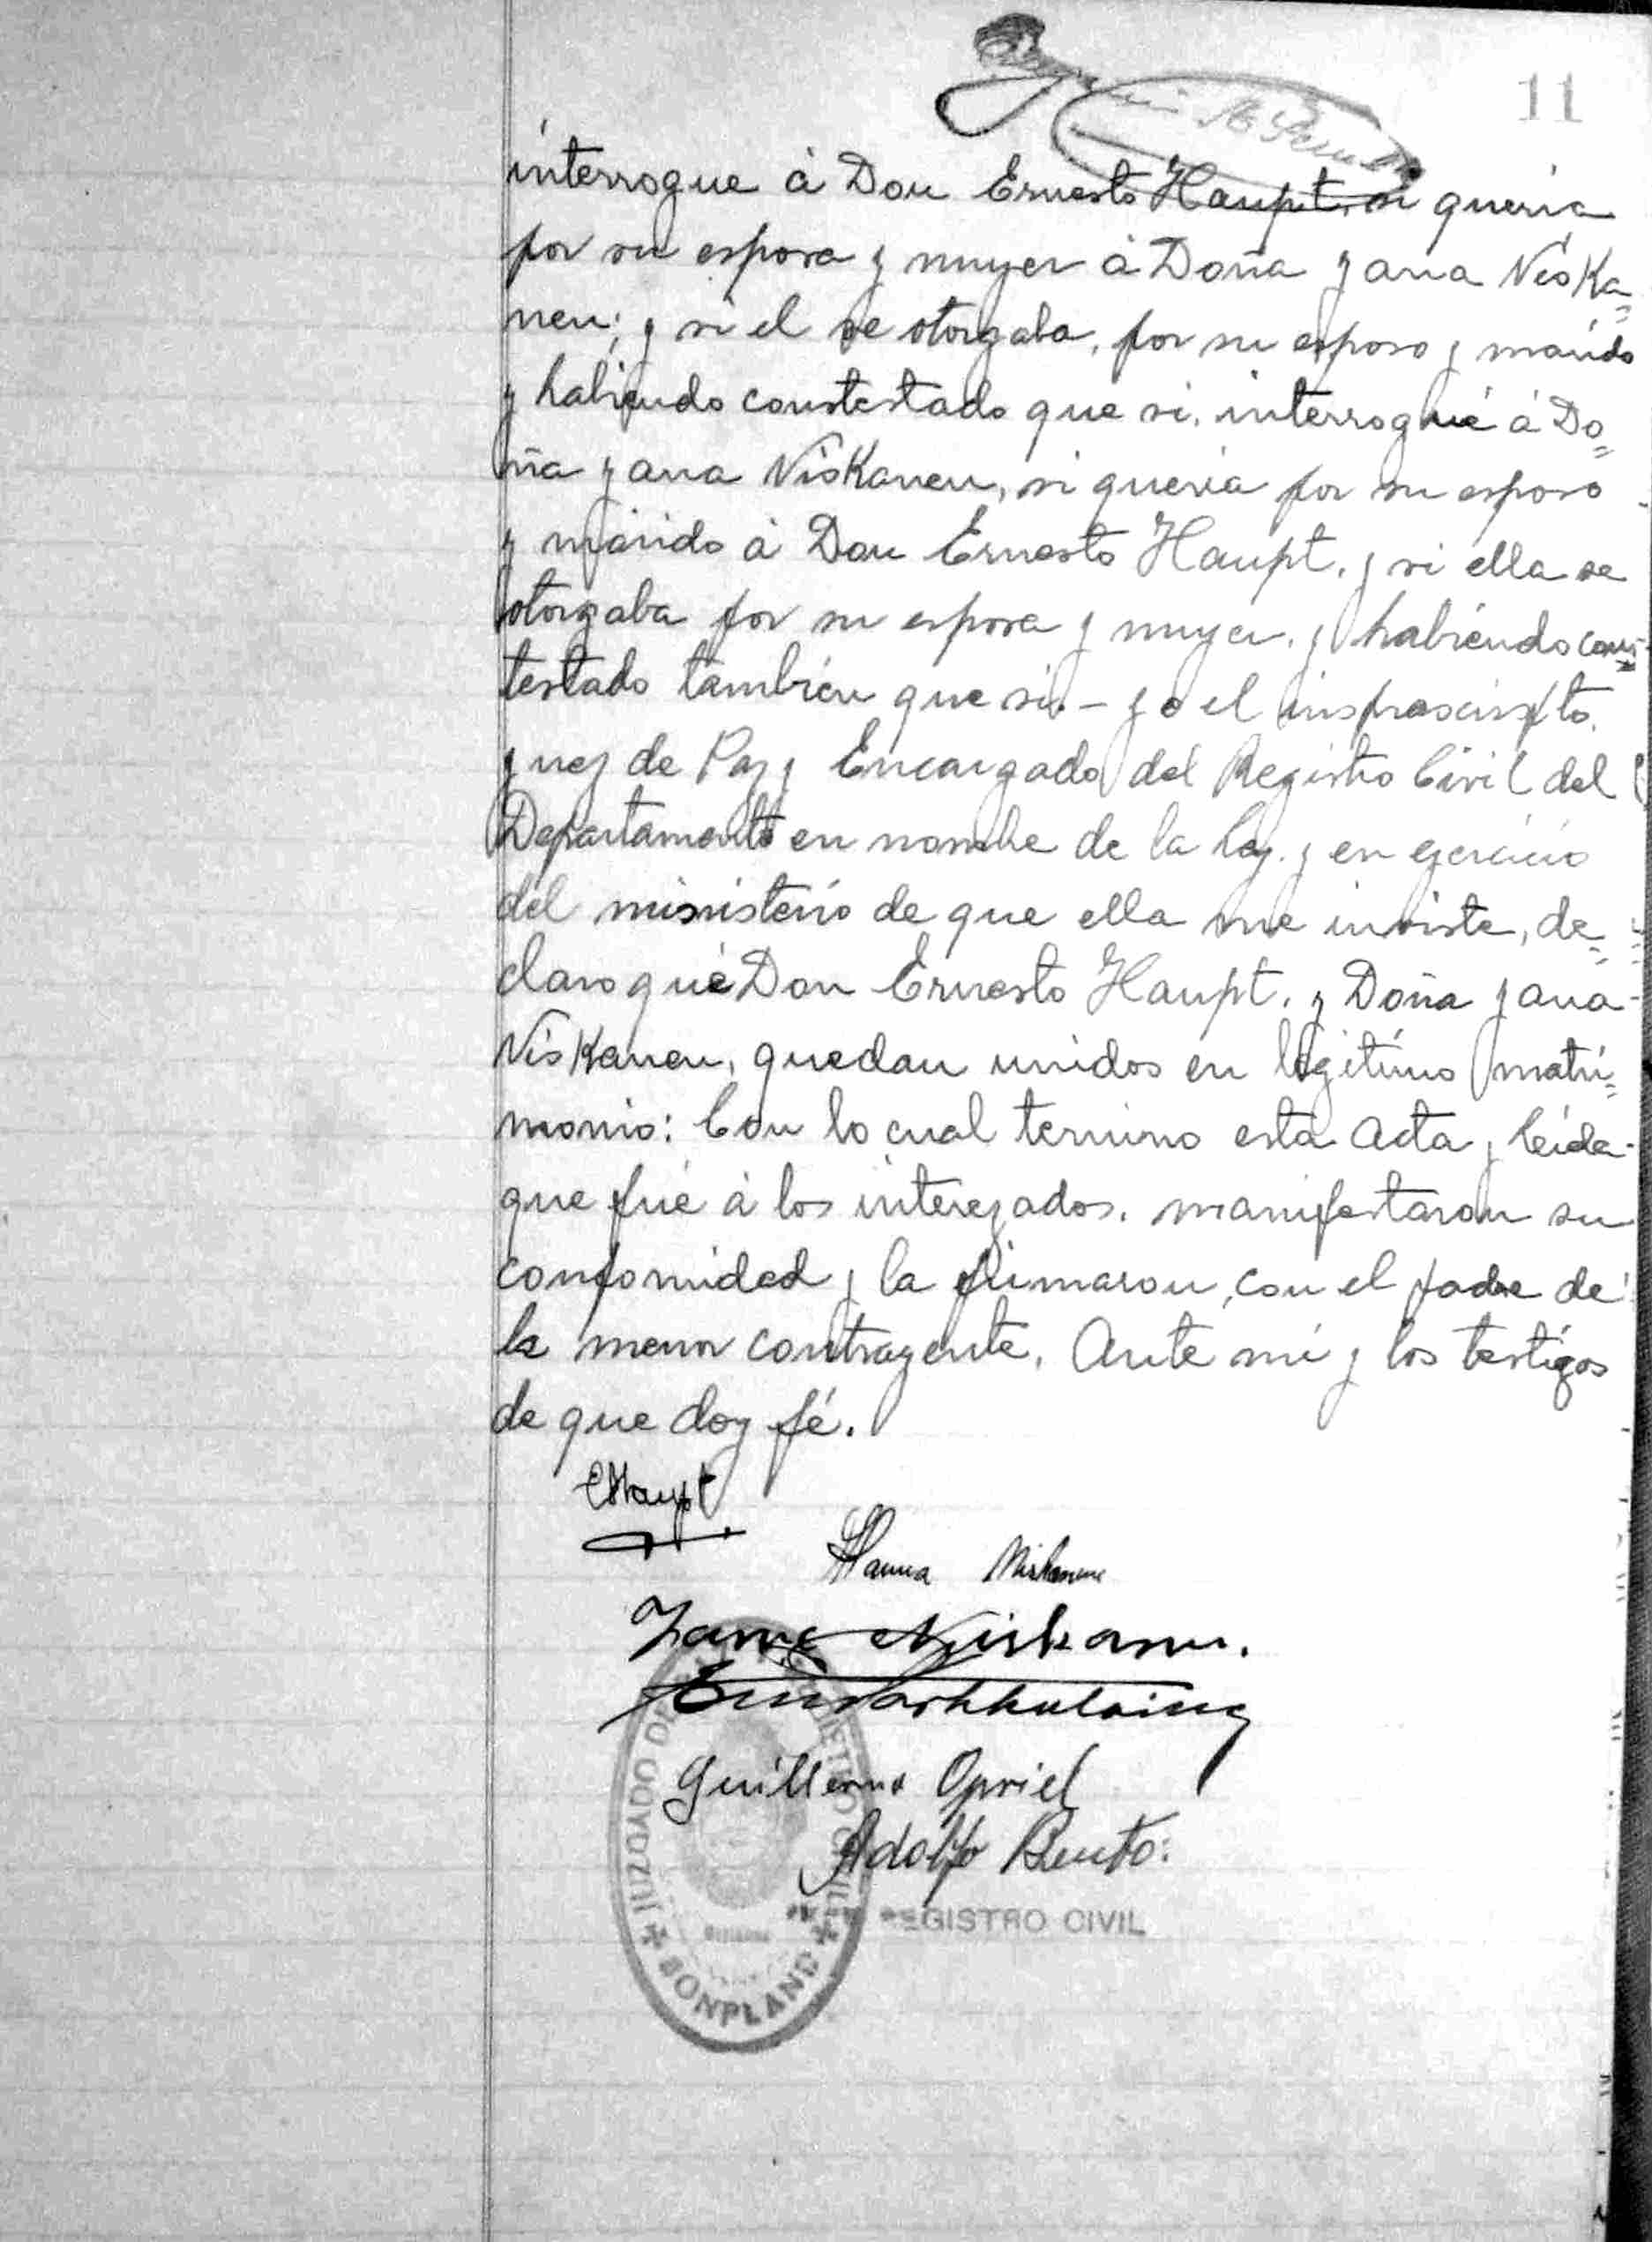 11
interrogue à Don Ernesto Haupt, si queria
por su esposa y muyer à Doña Yana Niska=
nen; y si el se otorgaba, por su esposo y marido
y habiendo constestado que si. interrogué à Do=
ña Yana Niskanen, si queria por su esposo
y marido à Don Ernesto Haupt. y si ella se
otorgaba por su esposa y muyer. y habiendo cons=
testado tambien que si. - Yo el insfrascripto.
Yuez de Paz y Encargado del Registro Civil del
Departamento en nombre de la ley. y en ejercicio
del ministerio de que ella me inviste, de=
claro que Don Ernesto Haupt. y Doña Yana
Niskanen, quedan unidos en legitimo matri=
monio: Con lo cual termino esta Acta y leida
que fué à los interezados. manifestaron su
conformidad y la firmaron, con el padre de
la menor contrayente. Ante mi y los testigos
de que doy fé.
EHaupt
Hanna Niskanen
Niskanen.
Guillermo Opriel
Adolfo Bento:
REGISTRO CIVIL
JUZGADO DE PAZ Y REGISTRO CIVIL
BONPLAND